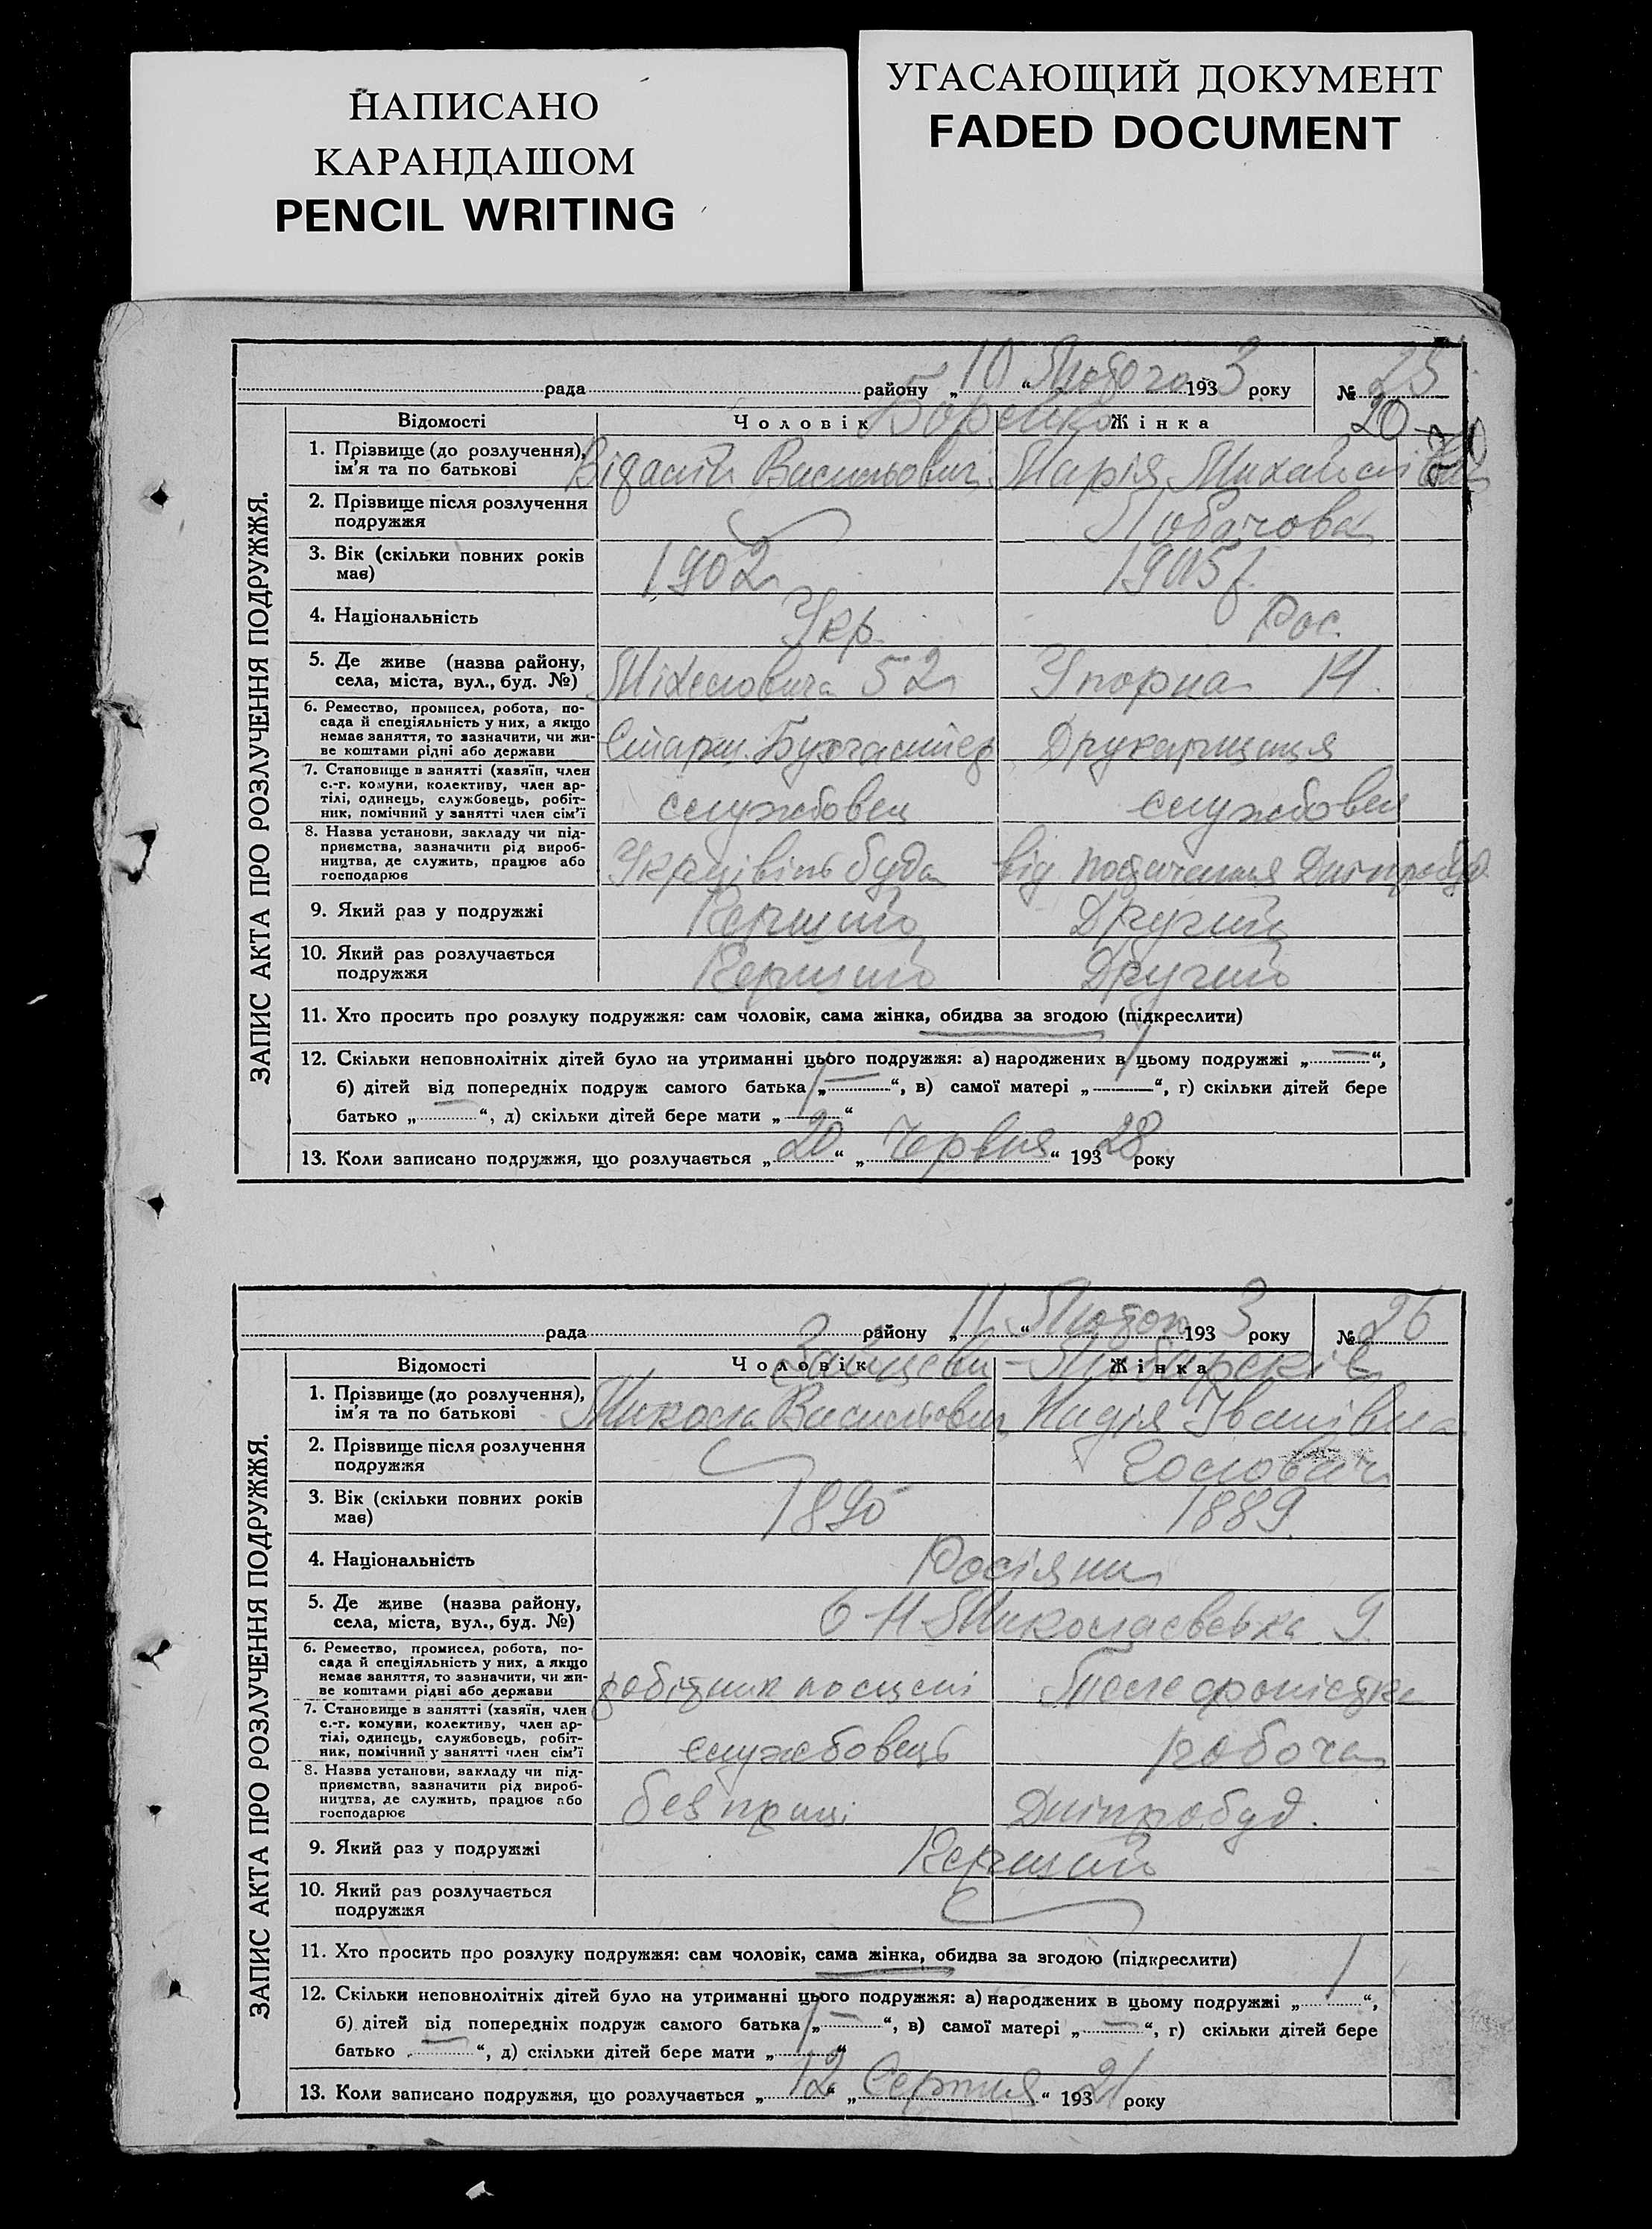 НАПИСАНО
КАРАНДАШОМ
PENCIL WRITING
УГАСАЮЩИЙ ДОКУМЕНТ
FADED DOCUMENT
ЗАПИС АКТА ПРО РОЗЛУЧЕННЯ ПОДРУЖЖЯ.
рада району „ 10 “ Лютого 193 3 року № 25
20
Відомості Чоловік Жінка
Боренко
1. Прізвище (до розлучення), ім’я та по батькові Віталій Васильович Марія Михайлівна
2. Прізвище після розлучення подружжя
3. Вік (скільки повних років має) 1902 1905
4. Національність Укр. Рос.
5. Де живе (назва району, села, міста, вул., буд. №) 52 Упорна 14.
6. Ремество, промисел, робота, по-
сада й спеціяльність у них, а якщо
немає заняття, то зазначити, чи жи-
ве коштами рідні або держави Старш. Бухгалтер Друкарщиця
7. Становище в занятті (хазяїн, член
с.-г. комуни, колективу, член ар-
тілі, одинець, службовець, робіт-
ник, помічний у занятті член сім’ї службовец службовец
8. Назва установи, закладу чи під-
приємства, зазначити рід вироб-
ництва, де служить, працює або
господарює від постачання Дніпробуд
9. Який раз у подружжі Перший Другий
10. Який раз розлучається подружжя Перший Другий
11. Хто просить про розлуку подружжя: сам чоловік, сама жінка, обидва за згодою (підкреслити)
12. Скільки неповнолітніх дітей було на утриманні цього подружжя: а) народжених в цьому подружжі „ — “,
б) дітей від попередніх подруж самого батька „ — “, в) самої матері „ “, г) скільки дітей бере
батько „ — “, д) скільки дітей бере мати „ “
13. Коли записано подружжя, що розлучається „ 20 “ „ Червня “ 193 28 року
ЗАПИС АКТА ПРО РОЗЛУЧЕННЯ ПОДРУЖЖЯ.
рада району „ 11 “ Лютого 193 3 року № 26
Відомості Чоловік Жінка
1. Прізвище (до розлучення), ім’я та по батькові Микола Васильович Надія Іванівна
2. Прізвище після розлучення подружжя
3. Вік (скільки повних років має) 1890 1889
4. Національність Росіяни
5. Де живе (назва району, села, міста, вул., буд. №) Миколаєвська 9
6. Ремество, промисел, робота, по-
сада й спеціяльність у них, а якщо
немає заняття, то зазначити, чи жи-
ве коштами рідні або держави робітник Телефоністка
7. Становище в занятті (хазяїн, член
с.-г. комуни, колективу, член ар-
тілі, одинець, службовець, робіт-
ник, помічний у занятті член сім’ї службовець робоча
8. Назва установи, закладу чи під-
приємства, зазначити рід вироб-
ництва, де служить, працює або
господарює без праці Дніпробуд.
9. Який раз у подружжі Перший
10. Який раз розлучається подружжя
11. Хто просить про розлуку подружжя: сам чоловік, сама жінка, обидва за згодою (підкреслити)
12. Скільки неповнолітніх дітей було на утриманні цього подружжя: а) народжених в цьому подружжі „ “,
б) дітей від попередніх подруж самого батька „ — “, в) самої матері „ — “, г) скільки дітей бере
батько „ — “, д) скільки дітей бере мати „ “
13. Коли записано подружжя, що розлучається „ 12 “ „ Серпня “ 193 21 року